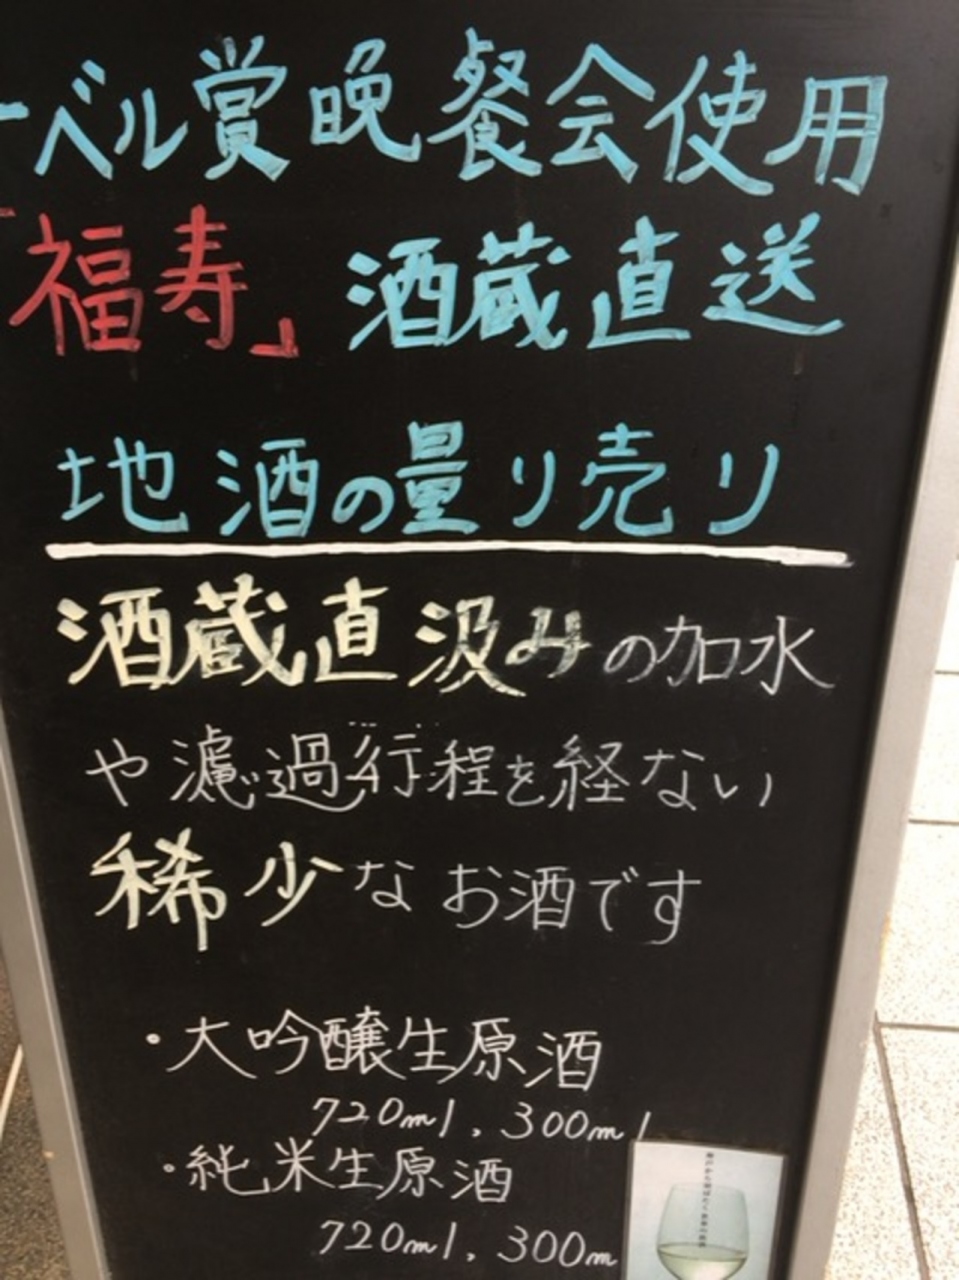 ーベル賞晩餐会使用
「福寿」酒蔵直送
地酒の量り売り
酒蔵直汲みの加水
や濾過行程を経ない
稀少なお酒です
・大吟醸生原酒
720ml, 300ml
・純米生原酒
720ml, 300m